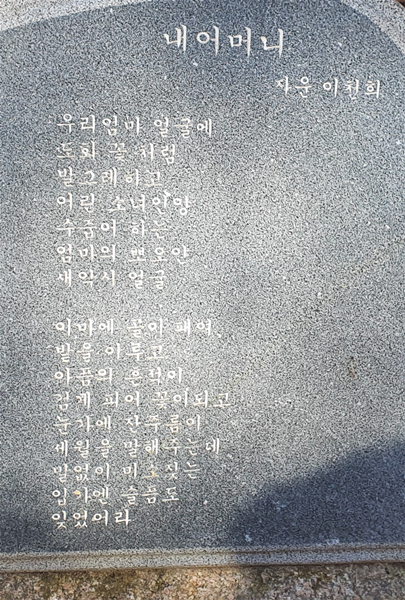 내어머니
자운 이천희
우리엄마 얼굴에
도화 꽃 처럼
발그레하고
어린 소녀인양
수줍어 하는
엄마의 뽀오얀
새악시 얼굴
이마에 골이 패여
밭을 이루고
아픔의 흔적이
검게 피어 꽃이되고
눈가에 잔주름이
세월을 말해주는데
말없이 미소짓는
입가엔 슬픔도
잊었어라